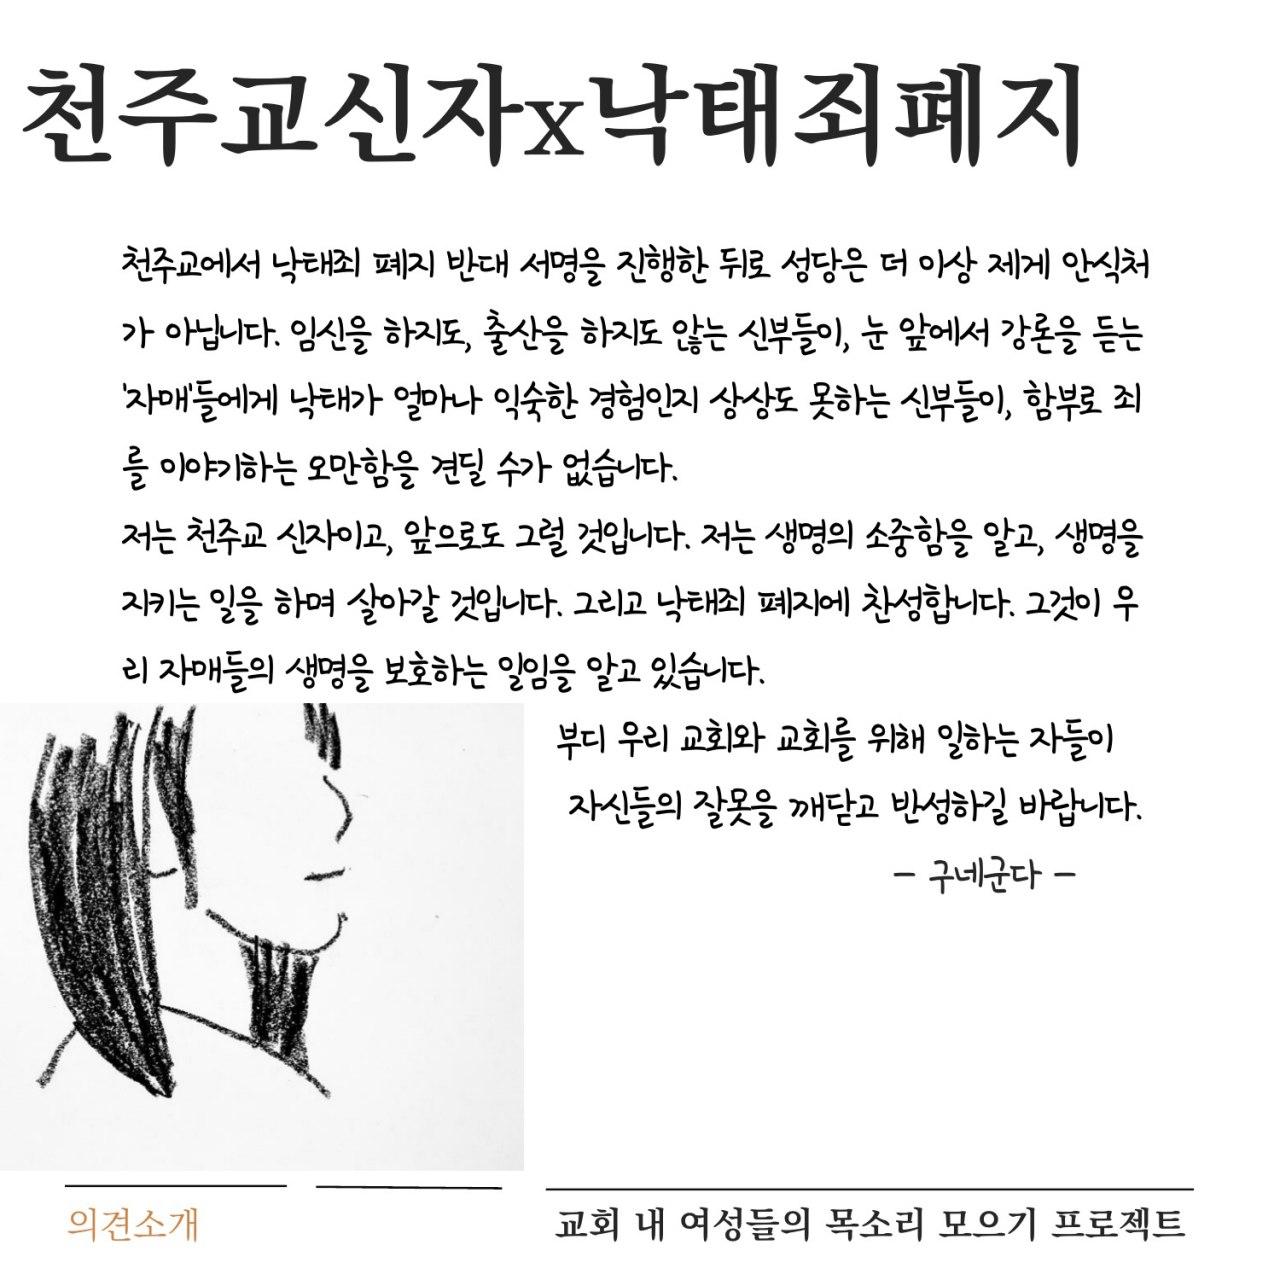 천주교신자x낙태죄폐지
천주교에서 낙태죄 폐지 반대 서명을 진행한 뒤로 성당은 더 이상 제게 안식처
가 아닙니다. 임신을 하지도, 출산을 하지도 않는 신부들이, 눈 앞에서 강론을 듣는
'자매'들에게 낙태가 얼마나 익숙한 경험인지 상상도 못하는 신부들이, 함부로 죄
를 이야기하는 오만함을 견딜 수가 없습니다.
저는 천주교 신자이고, 앞으로도 그럴 것입니다. 저는 생명의 소중함을 알고, 생명을
지키는 일을 하며 살아갈 것입니다. 그리고 낙태죄 폐지에 찬성합니다. 그것이 우
리 자매들의 생명을 보호하는 일임을 알고 있습니다.
부디 우리 교회와 교회를 위해 일하는 자들이
자신들의 잘못을 깨닫고 반성하길 바랍니다.
- 구네군다 -
의견소개
교회 내 여성들의 목소리 모으기 프로젝트